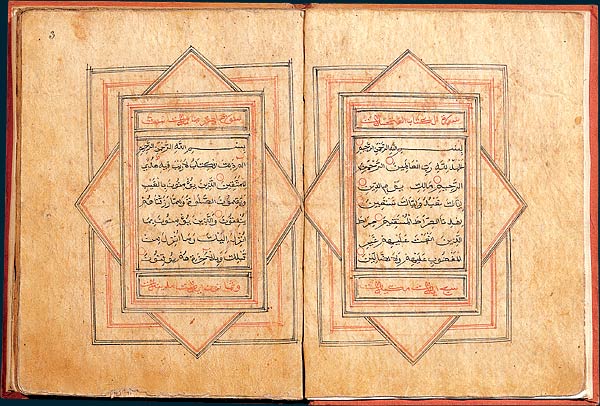 بسم الله الرحمن الرحيم
الحمد لله رب العالمين الرحمن
الرحيم مالك يوم الدين
اياك نعبد واياك نستعين
اهدنا الصراط المستقيم صراط
الذين انعمت عليهم غير
المغضوب عليهم ولا الضالين
3
بسم الله الرحمن الرحيم
الم ذلك الكتاب لا ريب فيه هدى
للمتقين الذين يؤمنون بالغيب
ويقيمون الصلوة ومما رزقناهم
ينفقون والذين يؤمنون بما
انزل اليك وما انزل من
قبلك وبالاخرة هم يوقنون